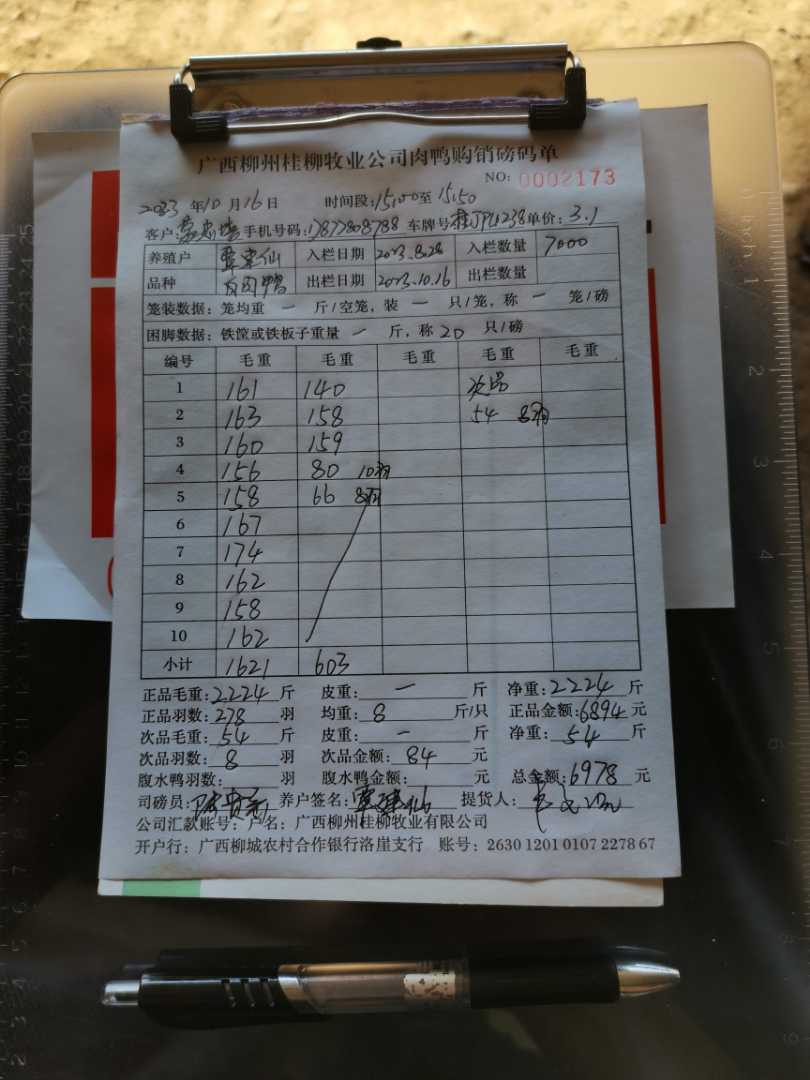 广西柳州桂柳牧业公司肉鸭购销磅码单
NO: 0002173
2023 年10 月16日 时间段:15:00至 15:50
客户 手机号码:17877808788 车牌号 单价: 3.1
养殖户 覃建仙 入栏日期 2023.8.28 入栏数量 7000
品种 出栏日期 2023.10.16 出栏数量
笼装数据: 笼均重 一 斤/空笼, 装 一 只/笼, 称 一 笼/磅
困脚数据: 铁筐或铁板子重量 一 斤, 称 20 只/磅
编号 毛重 毛重 毛重 毛重 毛重
1 161 140 次品
2 163 158 54 8羽
3 160 159
4 156 80 10羽
5 158 66 8羽
6 167
7 174
8 162
9 158
10 162
小计 1621 603
正品毛重: 2224 斤 皮重: 一 斤 净重: 2224 斤
正品羽数: 278 羽 均重: 8 斤/只 正品金额: 6894 元
次品毛重: 54 斤 皮重: 一 斤 净重: 54 斤
次品羽数: 8 羽 次品金额: 84 元
腹水鸭羽数: 羽 腹水鸭金额: 元 总金额: 6978 元
司磅员: 养户签名: 覃建仙 提货人:
公司汇款账号: 户名: 广西柳州桂柳牧业有限公司
开户行: 广西柳城农村合作银行洛崖支行 账号: 2630 1201 0107 2278 67